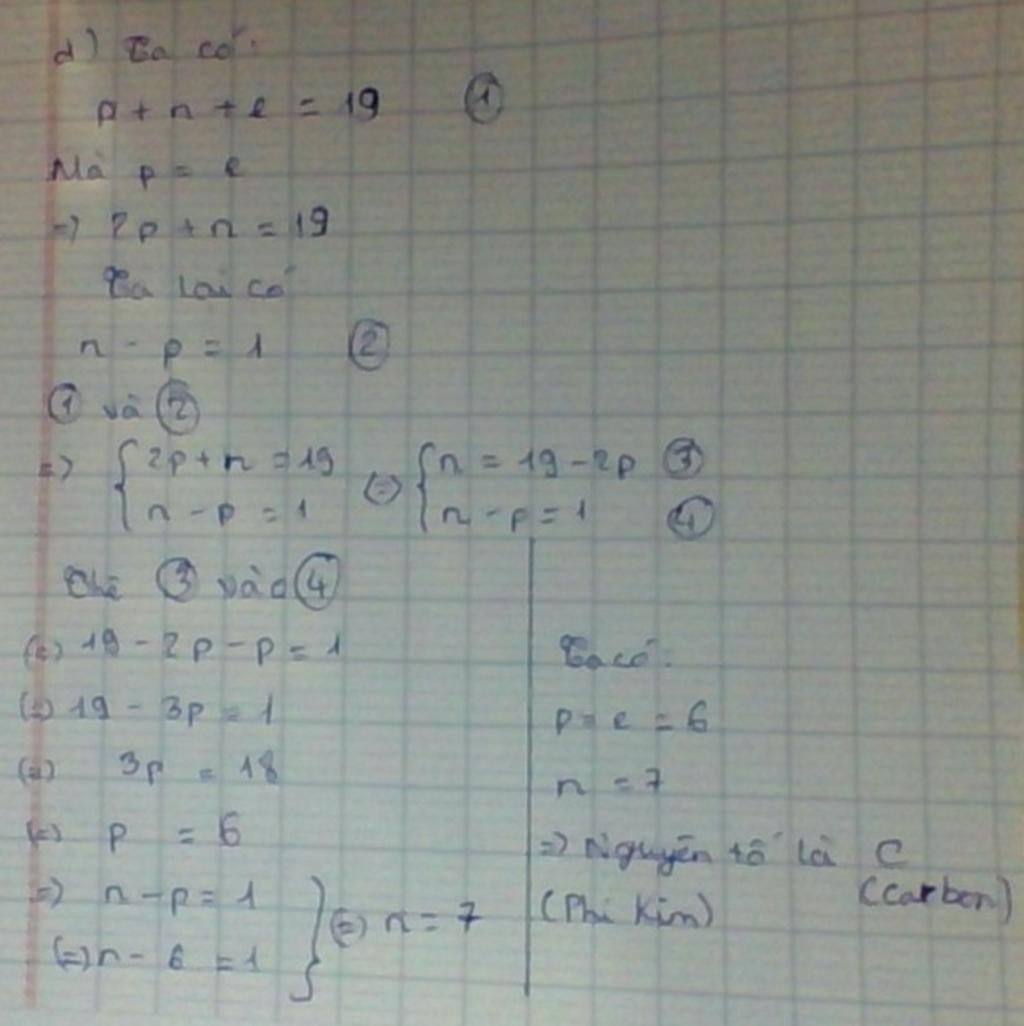 d) Ta có:
p + n + e = 19 ①
Mà p = e
=> 2p + n = 19
Ta lại có
n - p = 1 ②
① và ②
=> { 2p + n = 19 (=) { n = 19 - 2p ③
n - p = 1 n - p = 1 ④
Thế ③ vào ④
(=) 19 - 2p - p = 1
(=) 19 - 3p = 1
(=) 3p = 18
(=) p = 6
=> n - p = 1
(=) n - 6 = 1 } (=) n = 7
Ta có:
p = e = 6
n = 7
=> Nguyên tố là C
(Carbon)
(Phi Kim)